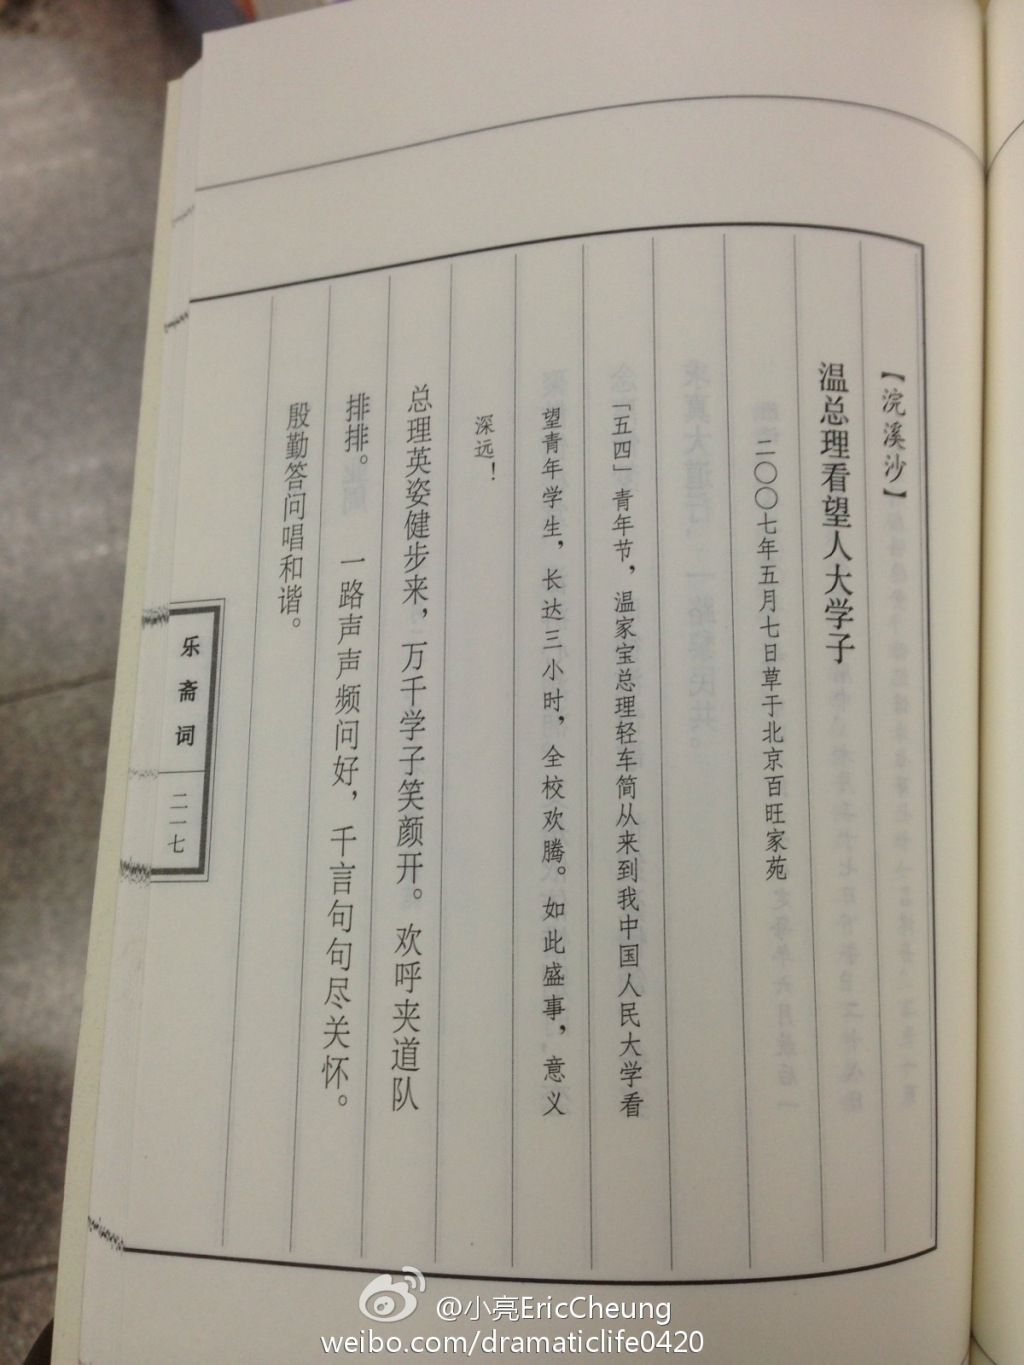 【浣溪沙】
温总理看望人大学子
二〇〇七年五月七日草于北京百旺家苑
「五四」青年节，温家宝总理轻车简从来到我中国人民大学看
望青年学生，长达三小时，全校欢腾。如此盛事，意义
深远！
总理英姿健步来，万千学子笑颜开。欢呼夹道队
排排。　　一路声声频问好，千言句句尽关怀。
殷勤答问唱和谐。
乐斋词
二一七
@小亮EricCheung
weibo.com/dramaticlife0420